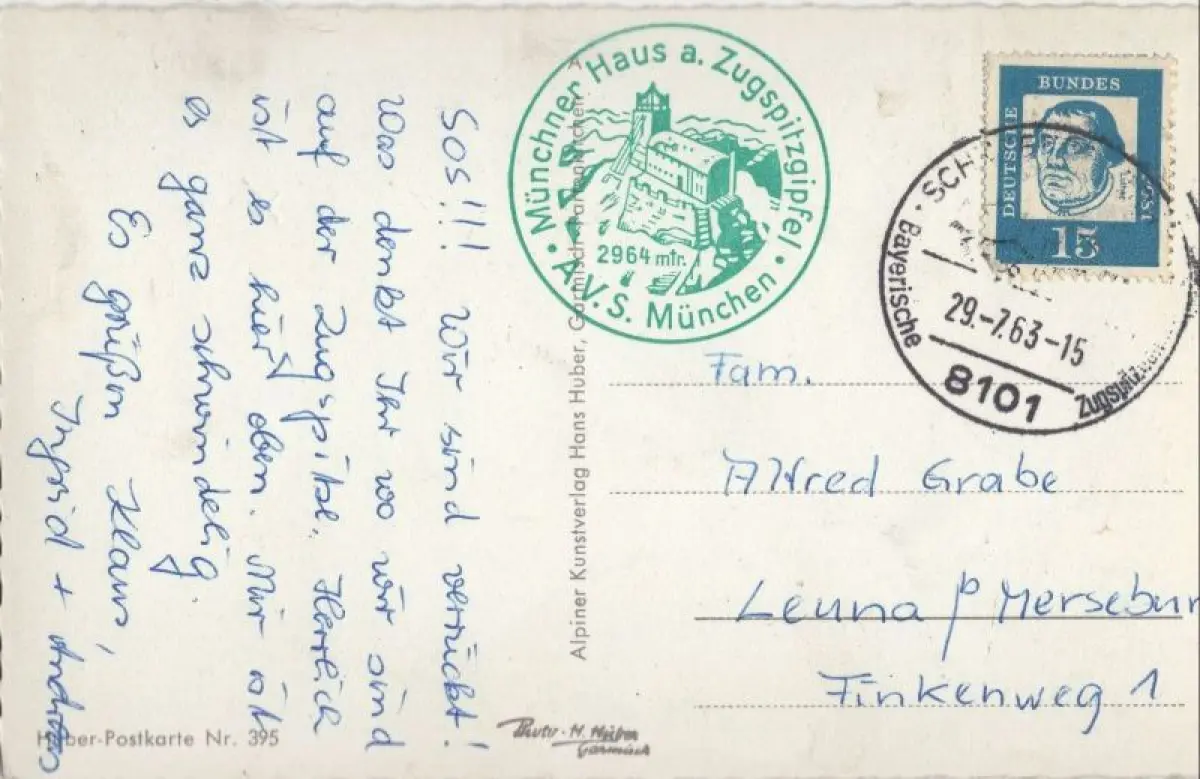 SOS!!! Wir sind verrückt!
Was denkt Ihr wo wir sind
auf der Zugspitze. Herrlich
ist es hier oben. Mir ist
es ganz schwindelig.
Es grüßen Klaus,
Ingrid + Andreas
Huber-Postkarte Nr. 395
Münchner Haus a. Zugspitzgipfel
2964 mtr.
A.V.S. München
Alpiner Kunstverlag Hans Huber, Garmisch-Partenkirchen
Photo-H. Huber
Garmisch
DEUTSCHE BUNDESPOST
Luther
15
Bayerische
29.-7.63-15
8101
Fam.
Alfred Grabe
Leuna p Mersebur
Finkenweg 1